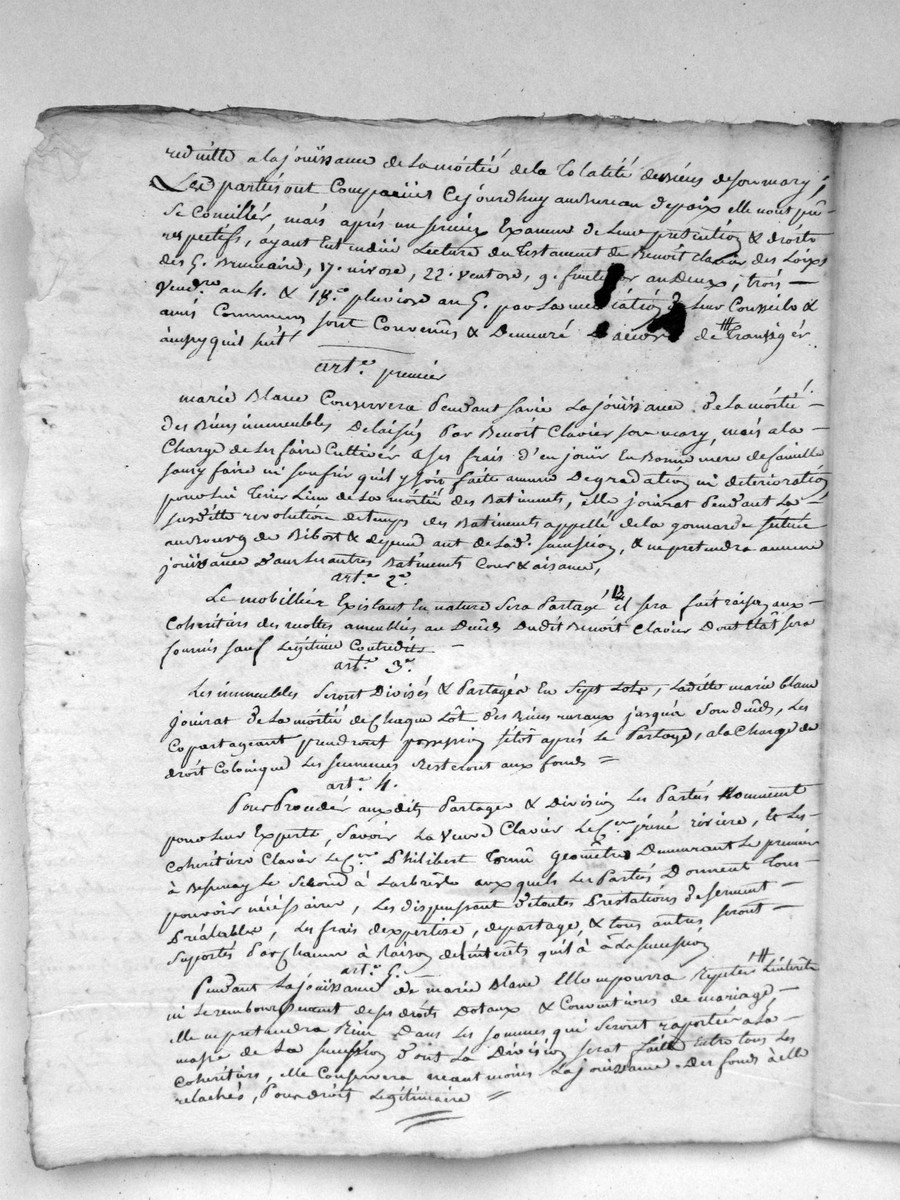 reduitte a la joüissance de la moitié de la totalité des biens de son mary ;
Les parties ont comparües ce jourdhuy au bureau de paix elle nont pû
se concillér, mais après un serieux Examen de leur prétention & droits
respectifs, áyant Entendüe Lecture du Testament de Benoit clavier des Loix
des 5. Brumaire, 17. nivose, 22. ventose, 9. fructidor an deux, trois
vendre. an 4. & 18.e pluviose an 5. par la médiation de leur Conseils &
amis Communs, sont Convenus & Demuré D'accord de Transigér
ainsy quil suit,
art.e premier
marie Blanc Conservera Pendant sa vie La joüissance de La moitié
des Biens immeubles Delaissés Par Benoit Clavier son mary, mais a la
Charge de les faire Cultivér a ses frais d'en joüir En Bonne mere de famille
sans y faire ni soufrir quil y soit faite aucune Degradation ni deterioration
pour lui Tenir Lieu de La moitié des Batiments, elle jouirat Pendant La
susditte revolution de temps des Batiments appellé de la gonnarde sitüé
au Bourg de Bibost & dependant de lad. succession, & ne pretendra aucune
joüissance dans les autres Batiments Cour & aisance,
art.e 2.e
Le mobilliér Existant En nature Sera Partagé il sera fait raison aux
Coheritiers des récoltes ameublies au Décès Dudit Benoit Clavier Dont Etât sera
fournis sauf Légitime Contredits
art.e 3.e
Les immeubles seront Divisés & Partagés En Sept Lots, Laditte marie blanc
jouirat de La moitié de Chaque Lôt des Biens ruraux jusqu'a son décès, Les
Copartageant prendront possession sitôt après le Partage, a la Charge du
droit Colonique Les semences resteront aux fonds =
art.e 4.
Pour Proceder auxdits Partages & Division Les Parties Nomment
pour leur Experts, Savoir La Veuve Clavier Le C.en rivière, & Les
Coheritiers Clavier Le C.en Philibert géomêtres Demeurant Le premier
à Bessenay Le second à Larbresle auxquels Les Parties Donnent Tous
pouvoir nécéssaires, Les dispensant de toutes Préstations de serment
Préalables, Les frais dexpertise, de partage, & tous autres seront
suportés Par Chacun à Raison de l'intérêts quil à à La succession
art.e 5.
Pendant La joüissance de marie Blanc Elle ne pourra repeter L'intérêts
ni Le remboursement de ses droits Dotaux & Conventions de mariage,
elle ne pretendra Rien Dans Les sommes qui Seront raportés a La
masse de La succession dont La Division serat faite Entre tous Les
Coheritiers, elle Conservera neantmoins La joüissance Des fonds à elle
relachés, Pour droit Legitimaire =